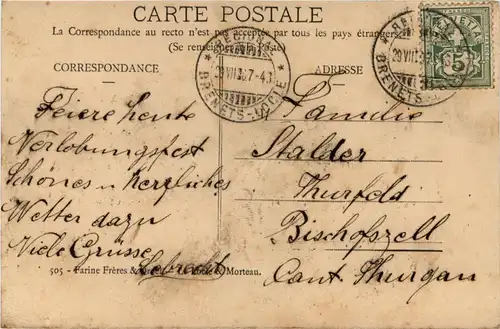 CARTE POSTALE
La Correspondance au recto n'est pas acceptée par tous les pays étrangers
(Se renseigner à la Poste)
CORRESPONDANCE
ADRESSE
BRENETS-LOCLE
BRENETS-LOCLE
5
Feiere heute
Verlobungsfest
Schönes u herzliches
Wetter dazu
Viele Grüsse
Gebrecht
Familie
Stalder
Thurfeld
Bischofszell
Cant. Thurgau
505 - Farine Frères & Morteau.